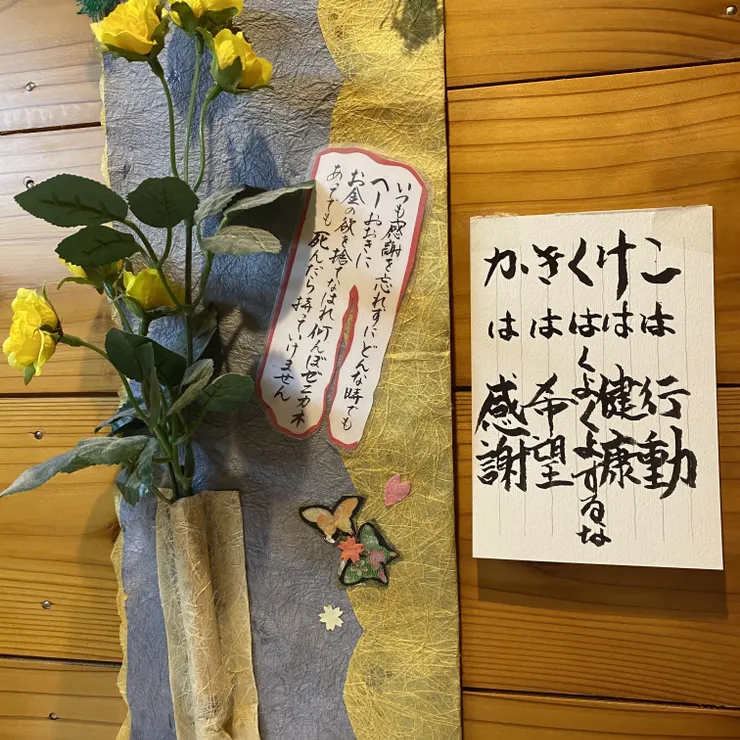 いつも感謝を忘れずにどんな時でも
へーおおきに
お金の欲を捨てなはれ何んぼゼニカネ
あっても死んだら持っていけません
かは感謝
きは希望
くはくよくよするな
けは健康
こは行動